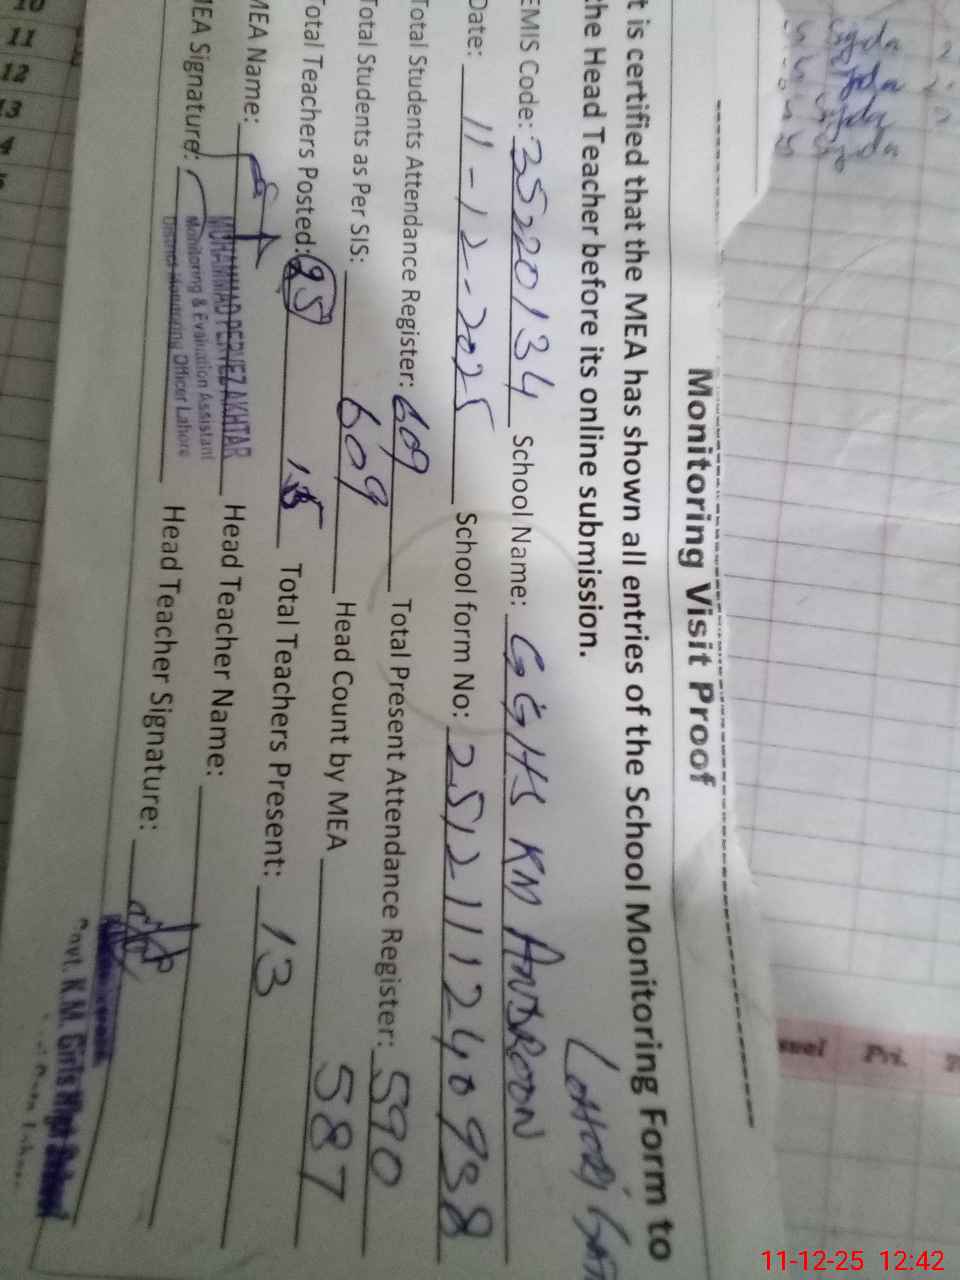 Monitoring Visit Proof
t is certified that the MEA has shown all entries of the School Monitoring Form to
the Head Teacher before its online submission.
EMIS Code: 35220134 School Name: GGHS KM ANDROON
LOHORI GATE
Date: 11-12-2025 School form No: 251211124 0938
Total Students Attendance Register: 609 Total Present Attendance Register: 590
Total Students as Per SIS: 609 Head Count by MEA 587
Total Teachers Posted: 25 15 Total Teachers Present: 13
MEA Name: Head Teacher Name:
MEA Signature: Head Teacher Signature:
MUHAMMAD PERVEZ AKHTAR
Monitoring & Evaluation Assistant
District Monitoring Officer Lahore
Govt. K.M. Girls High School
10
11
12
13
Fri.
11-12-25 12:42